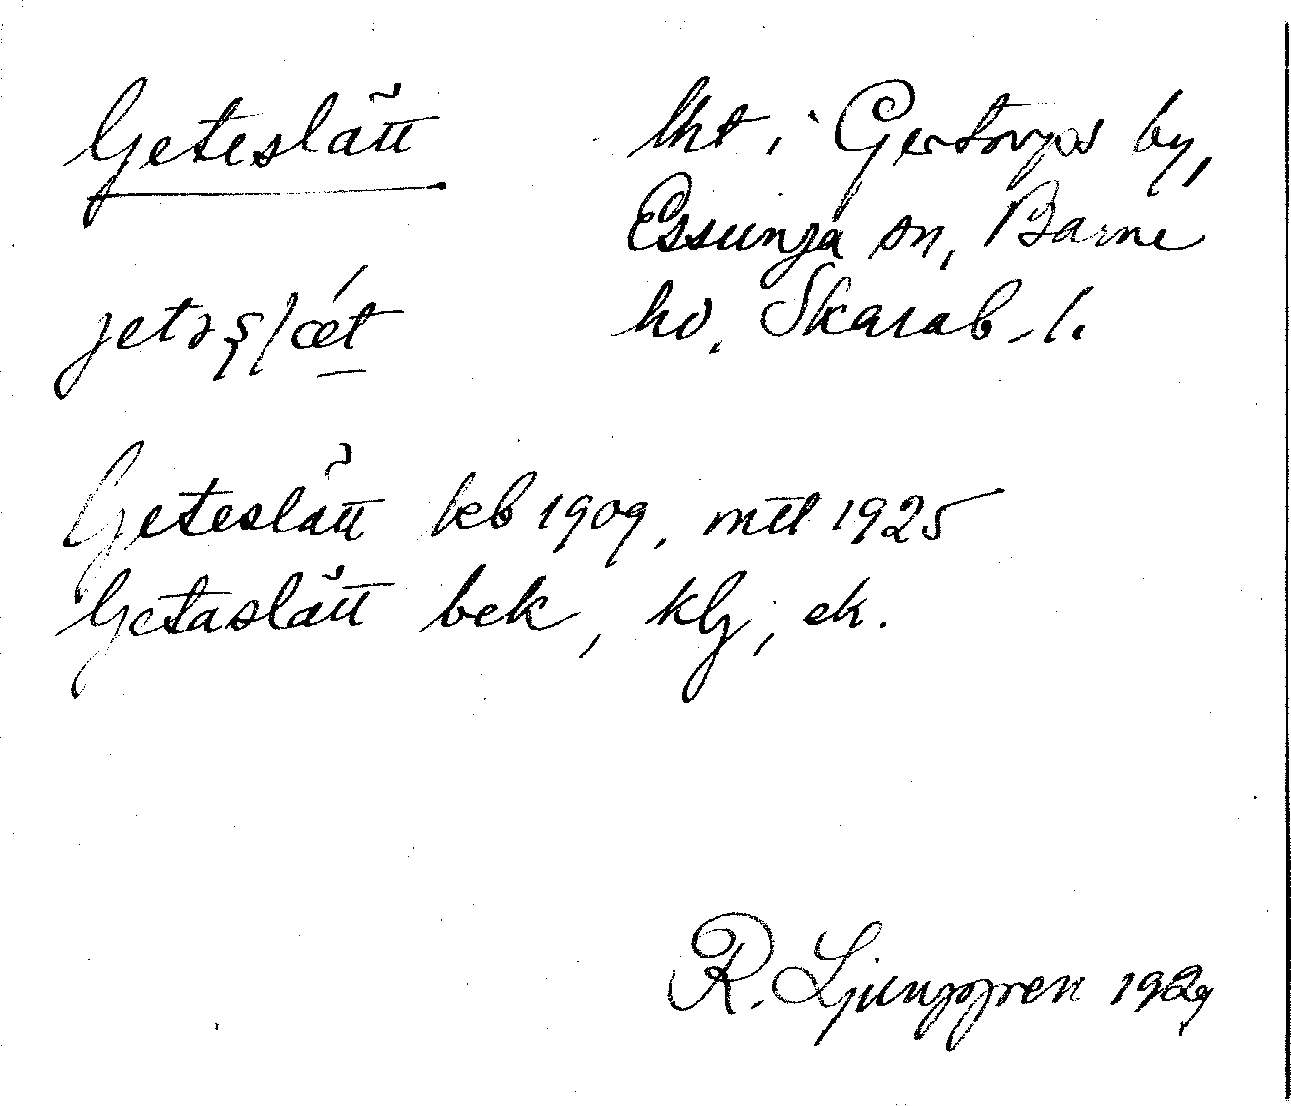 Geteslätt
lht i Gertorps by,
Essunga sn, Barne
hd, Skarab. l.
Geteslätt keb 1909, mtl 1925
Getaslätt bek, klj, ek.
R. Ljunggren 1929